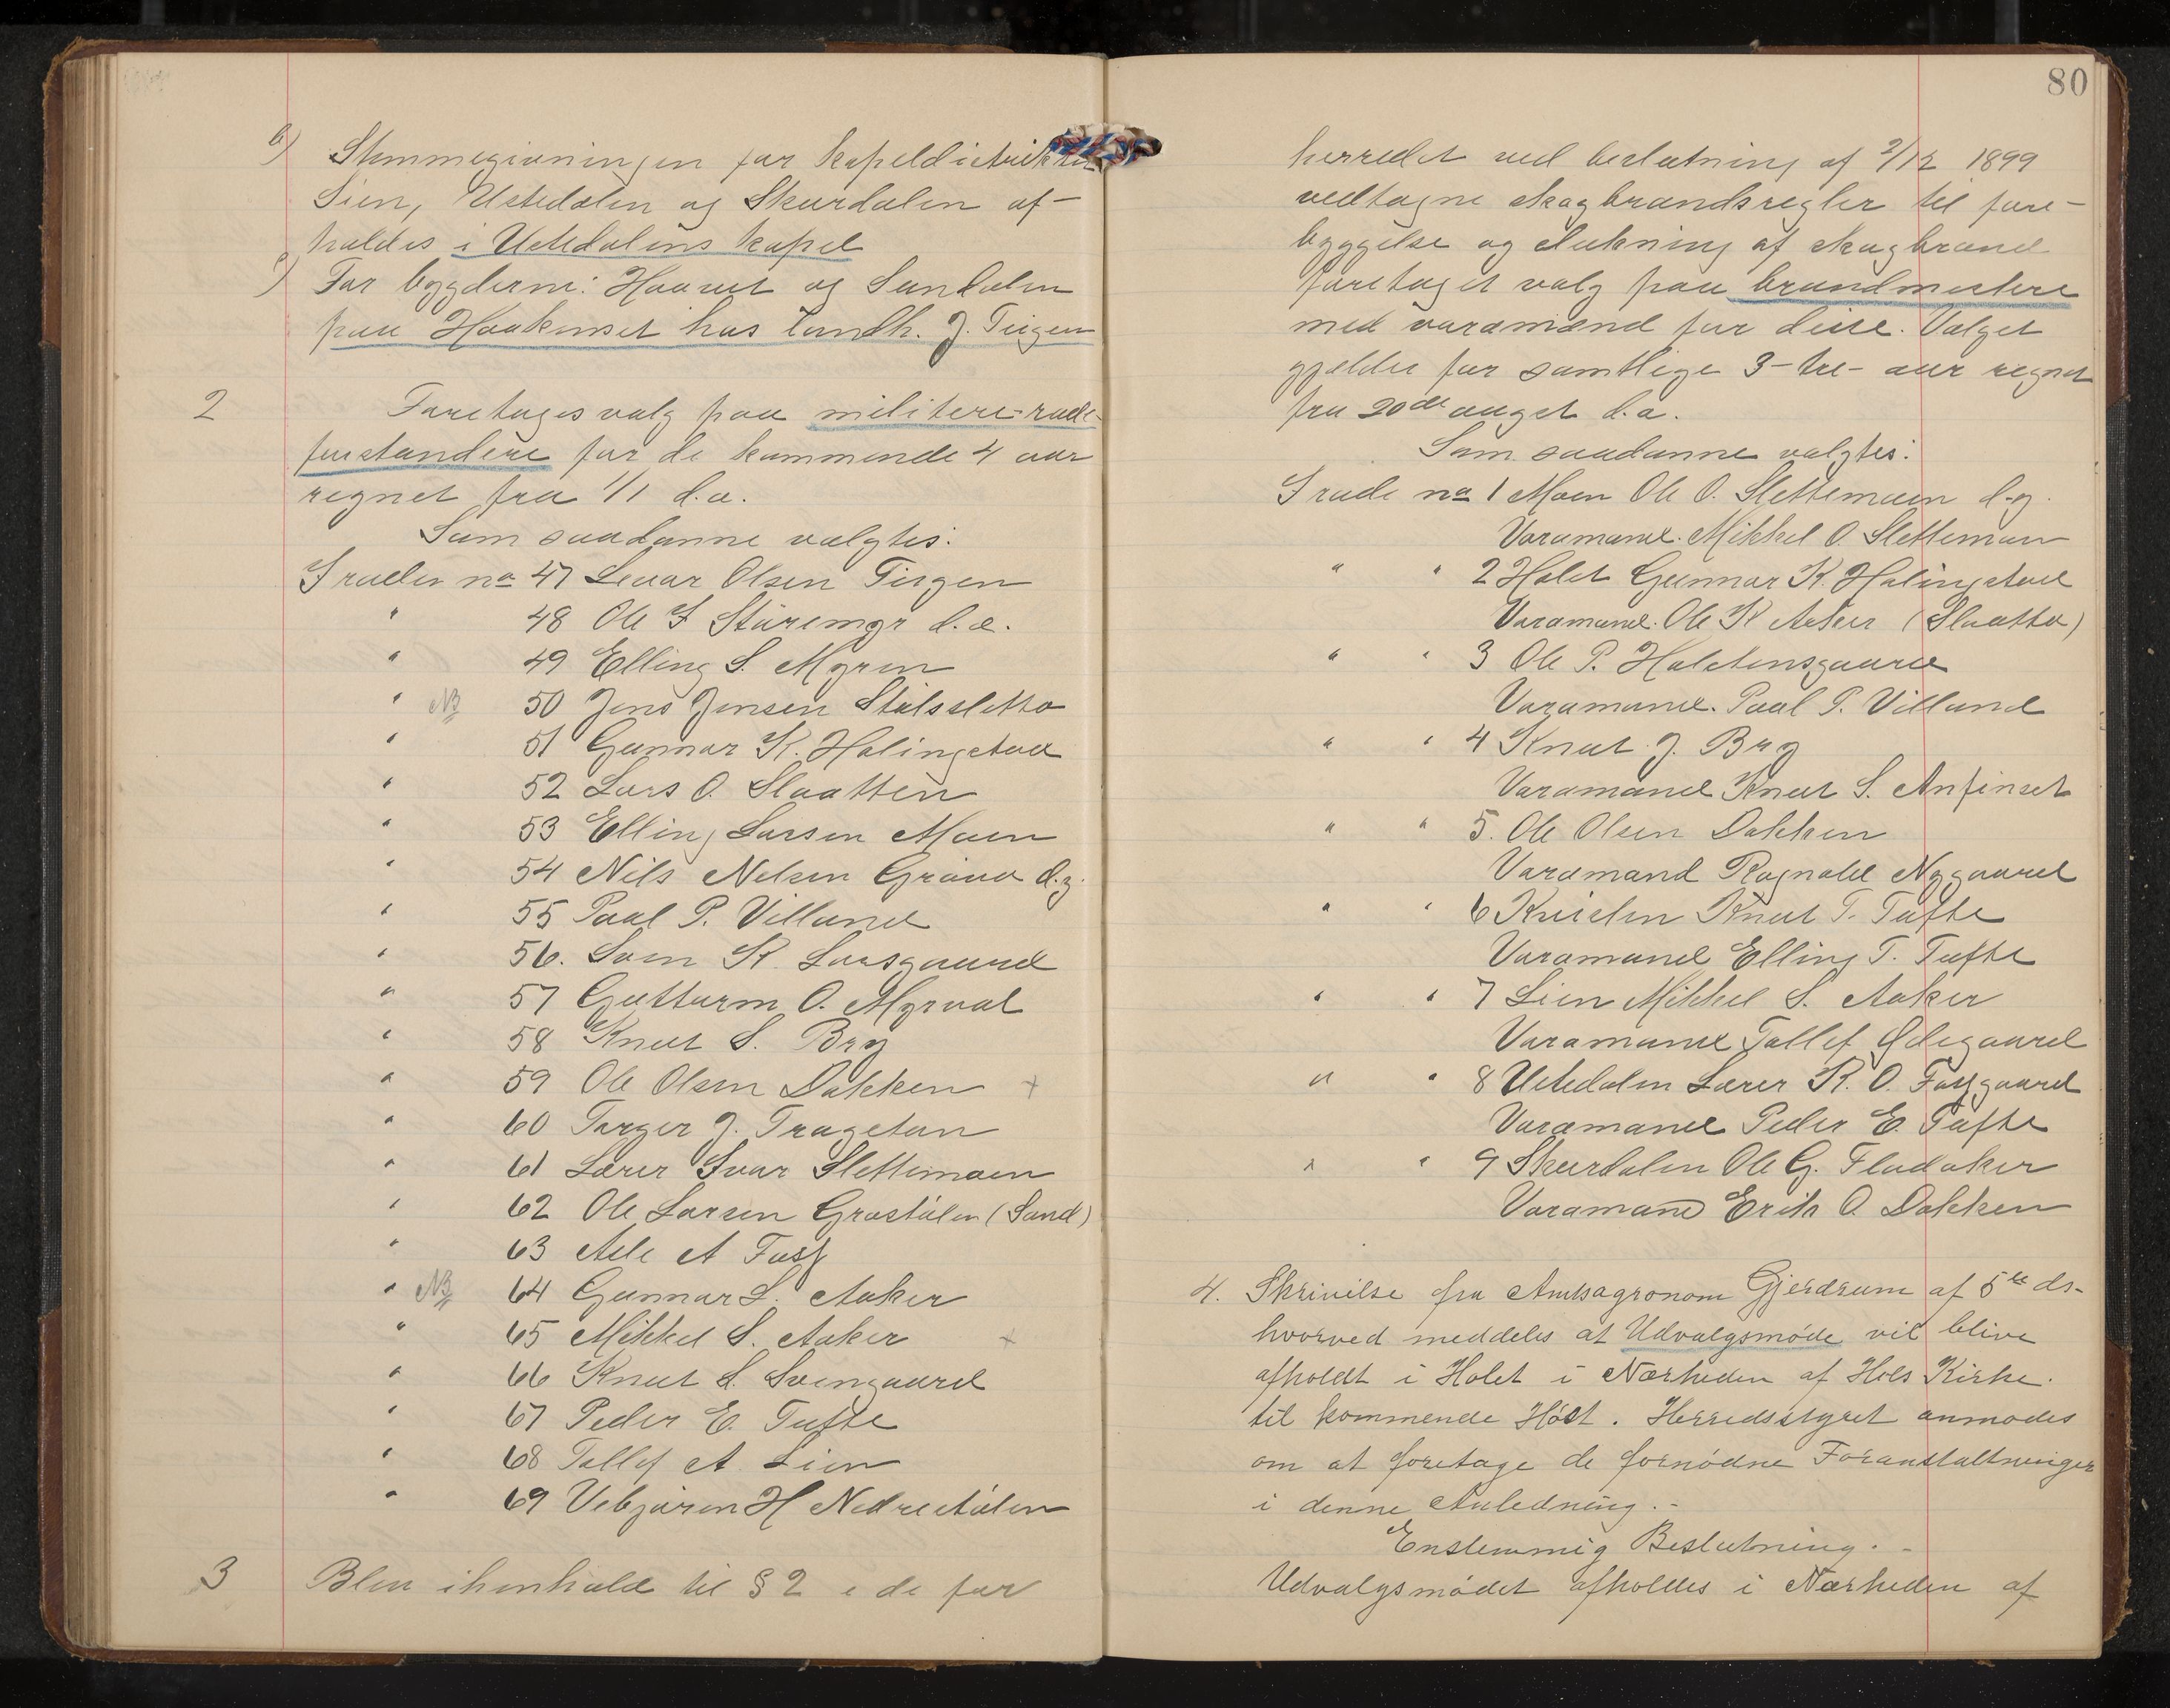 b) Stemmegivningen for kapeldistriktet
Lien, Ustedalen og Skurdalen af-
holdes i Ustedalens kapel
c) For bygderne: Haavet og Sundalen
paa Haakenset hos landh. J. Tirgen
2 Foretages valg paa militære rode-
forstandere for de kommende 4 aar
regnet fra 1/1 d.a.
Som saadanne valgtes:
I roden no 47 Sevar Olsen Tirgen
" 48 Ole I Støremyr d.æ.
" 49 Elling S. Myren
" NB 50 Jens Jensen Stølsslette
" 51 Gunnar K. Holingstad
" 52 Lars O. Slaatten
" 53 Elling Larsen Moen
" 54 Nils Nelsen Grøna d.y.
" 55 Paal P. Villand
" 56. Sven K. Larsgaard
" 57 Guttorm O. Myrvol
" 58 Knut S. Bry
" 59 Ole Olsen Dokken +
" 60 Torger J. Trageton
" 61 Lærer Ivar Slettemoen
" 62 Ole Larsen Grøstølen (Sand)
" 63 Asle A Foss
" NB 64 Gunnar L. Aaker
" 65 Mikkel S. Aaker +
" 66 Knut S. Svengaard
" 67 Peder E. Tufte
" 68 Tollef A Lien
" 69 Vebjørn H Nedrestølen
3 Blev i henhold til § 2 i de for
80
herredet ved beslutning af 2/12 1899
vedtagne skogbrandsregler til fore-
byggelse og slukning af skogbrand
foretaget valg paa brandmestere
med varamænd for disse. Valget
gjælder for samtlige 3-tre- aar regnet
fra 20de august d.a.
Som saadanne valgtes:
I rode no 1 Moen Ole O. Slettemoen d.y.
Varamand. Mikkel O. Slettemoen
" " 2 Holet Gunnar K. Holingstad
Varamand. Ole K Aaker (Slaatto)
" " 3 Ole P. Holstensgaard
Varamand. Paal P. Villand
" " 4 Knut J. Bry
Varamand Knut S. Anfinset
" " 5. Ole Olsen Dokken
Varamand Ragnald Nygaard
" " 6 Kvislen Knut T. Tufte
Varamand Elling T. Tufte
" " 7 Lien Mikkel S. Aaker
Varamand Tollef Ødegaard
" " 8 Ustedalen Lærer K. O. Fossgaard
Varamand Peder E. Tufte
" " 9 Skurdalen Ole G. Flodaker
Varamand Erik O. Dokken
4. Skrivelse fra Amtsagronom Gjerdrum af 5te ds-
hvorved meddeles at Udvalgsmøde vil blive
afholdt i Holet i Nærheden af Hols Kirke.
til kommende Høst. Herredsstyret anmodes
om at foretage de fornødne Foranstaltninger
i denne Anledning.-
Enstemmig Beslutning.-
Udvalgsmødet afholdes i Nærheden af